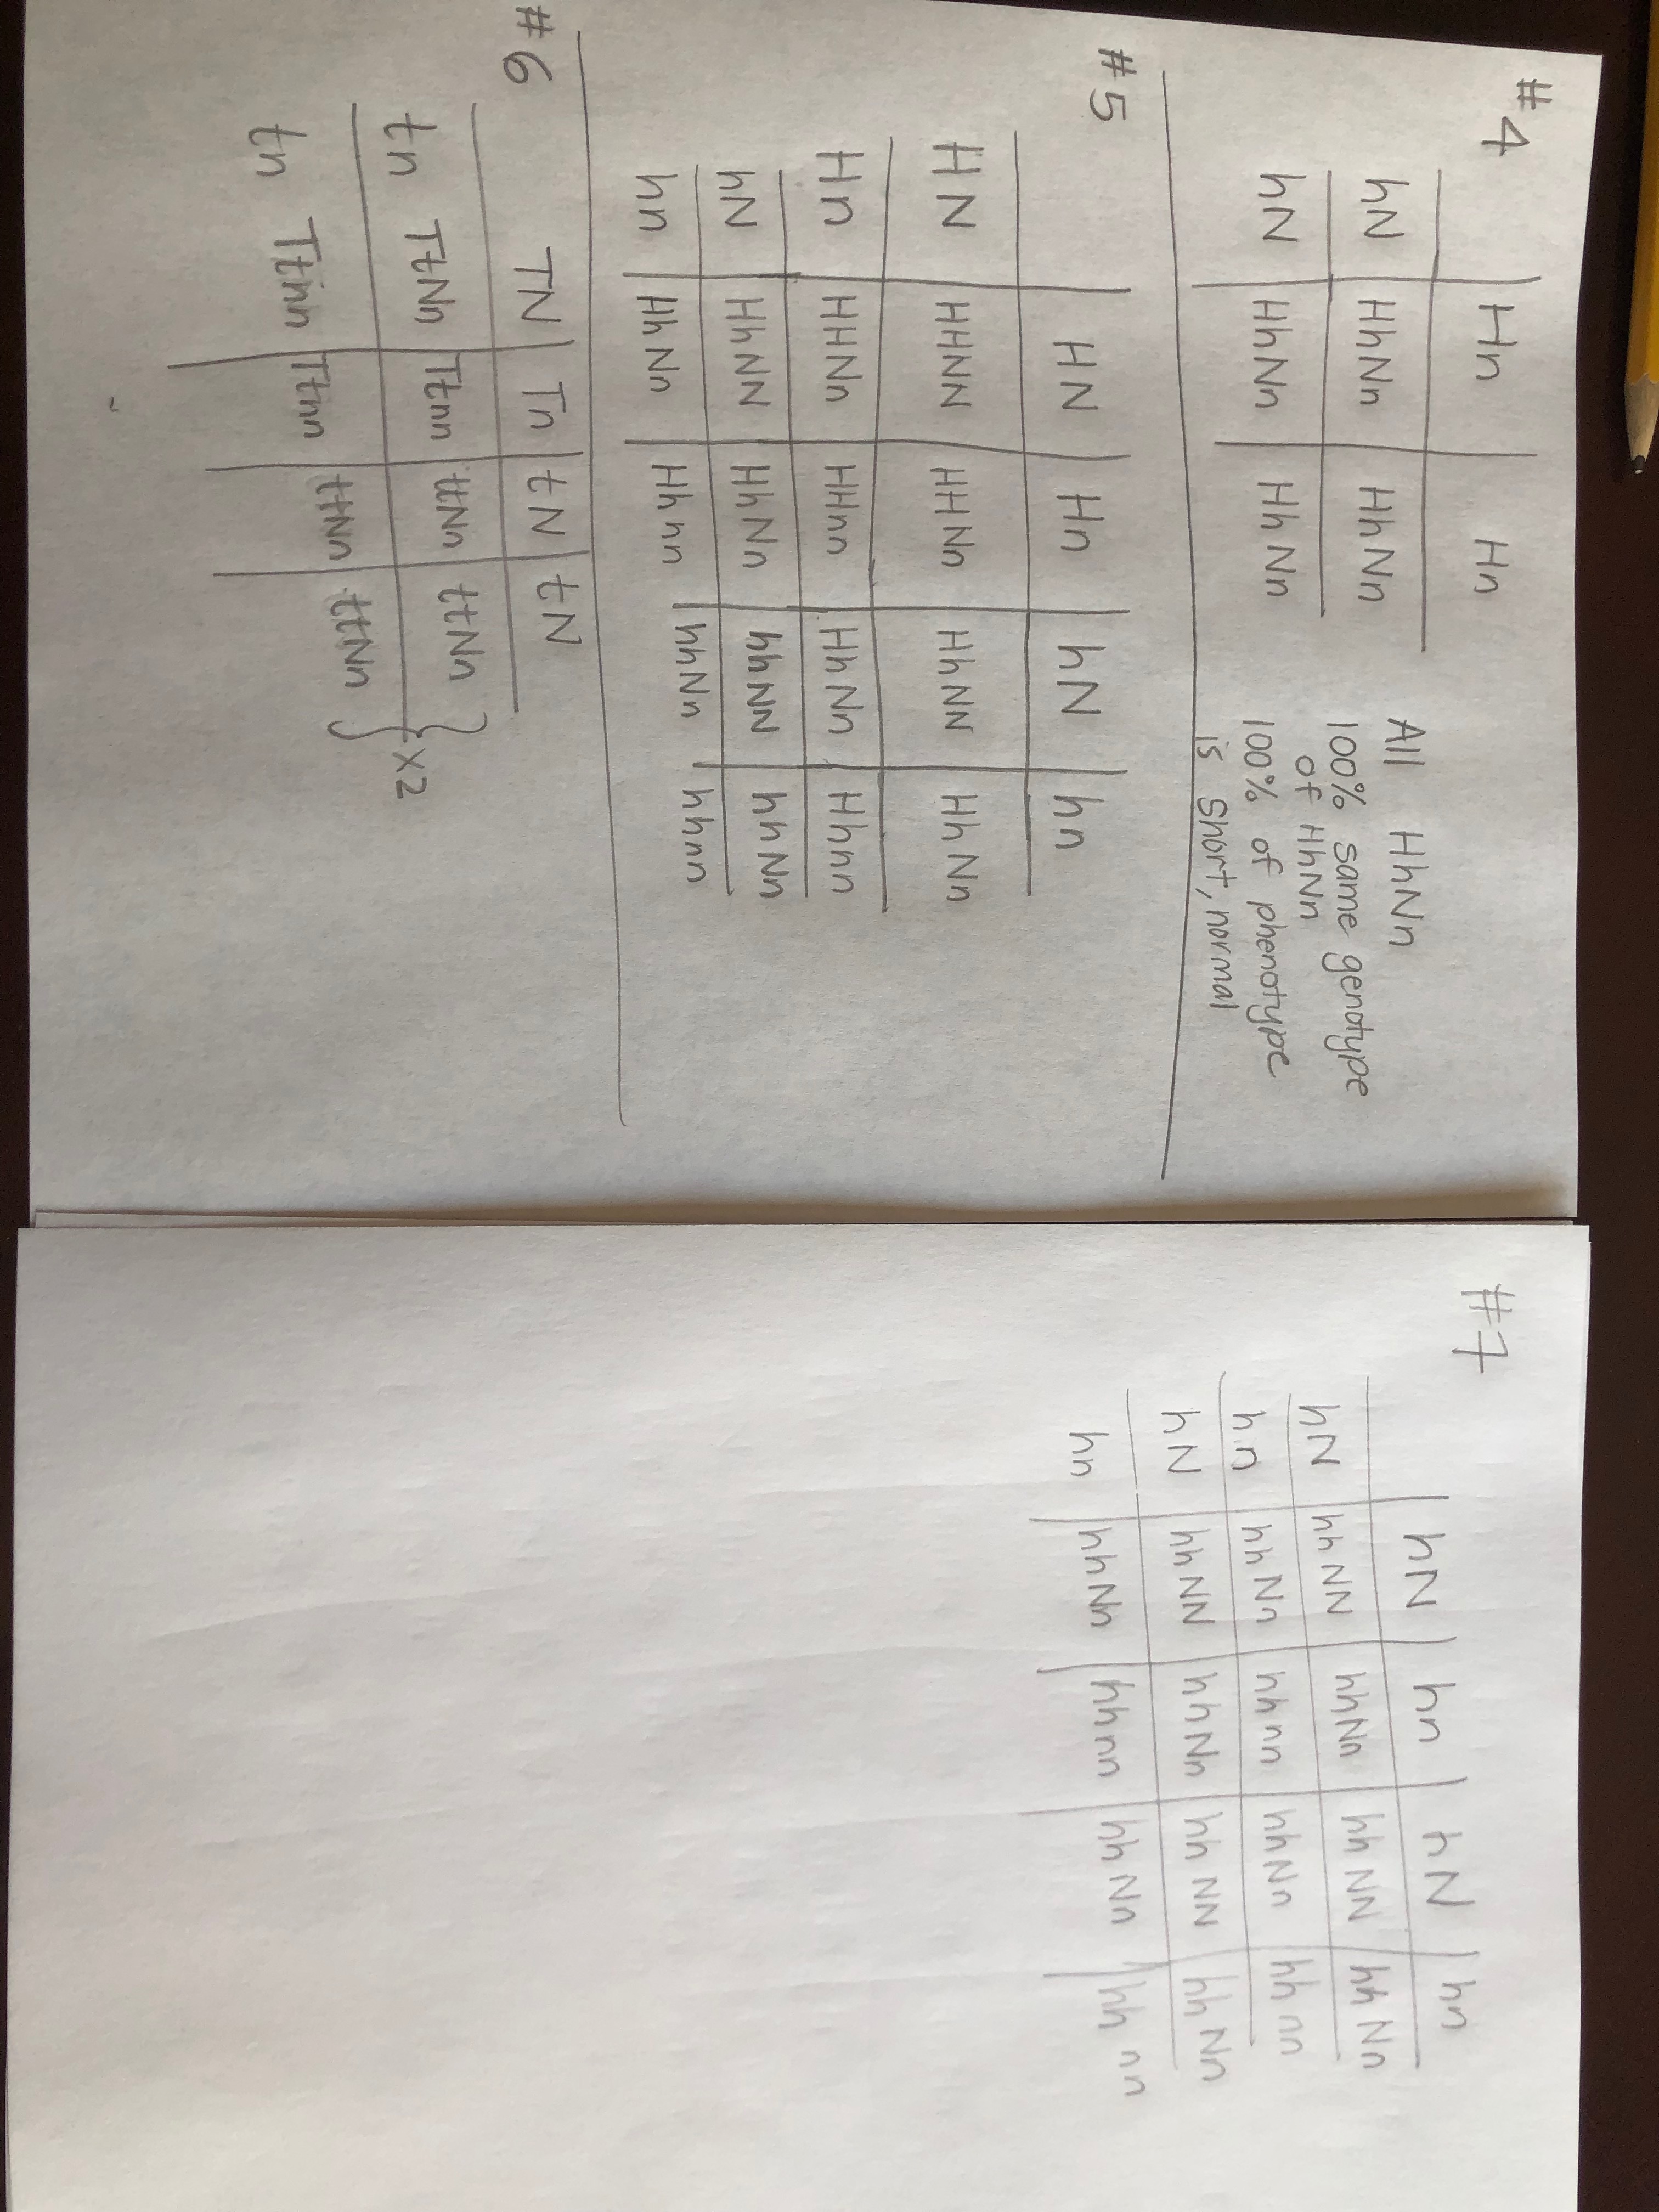 #4
Hn Hn
hN HhNn HhNn
hN HhNn HhNn
All HhNn
100% same genotype
of HhNn
100% of phenotype
is short, normal
#5
HN Hn hN hn
HN HHNN HHNn HhNN HhNn
Hn HHNn HHnn HhNn Hhnn
hN HhNN HhNn hhNN hhNn
hn HhNn Hhnn hhNn hhnn
#6
TN Tn tN tN
tn TtNn Ttnn ttNn ttNn
tn Ttnn Ttnn ttNn ttNn
x2
#7
hN hn hN hn
hN hhNN hhNn hhNN hhNn
hn hhNn hhnn hhNn hhnn
hN hhNN hhNn hhNN hhNn
hn hhNn hhnn hhNn hhnn